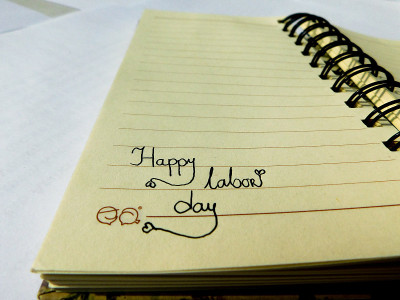 Happy
labor
day